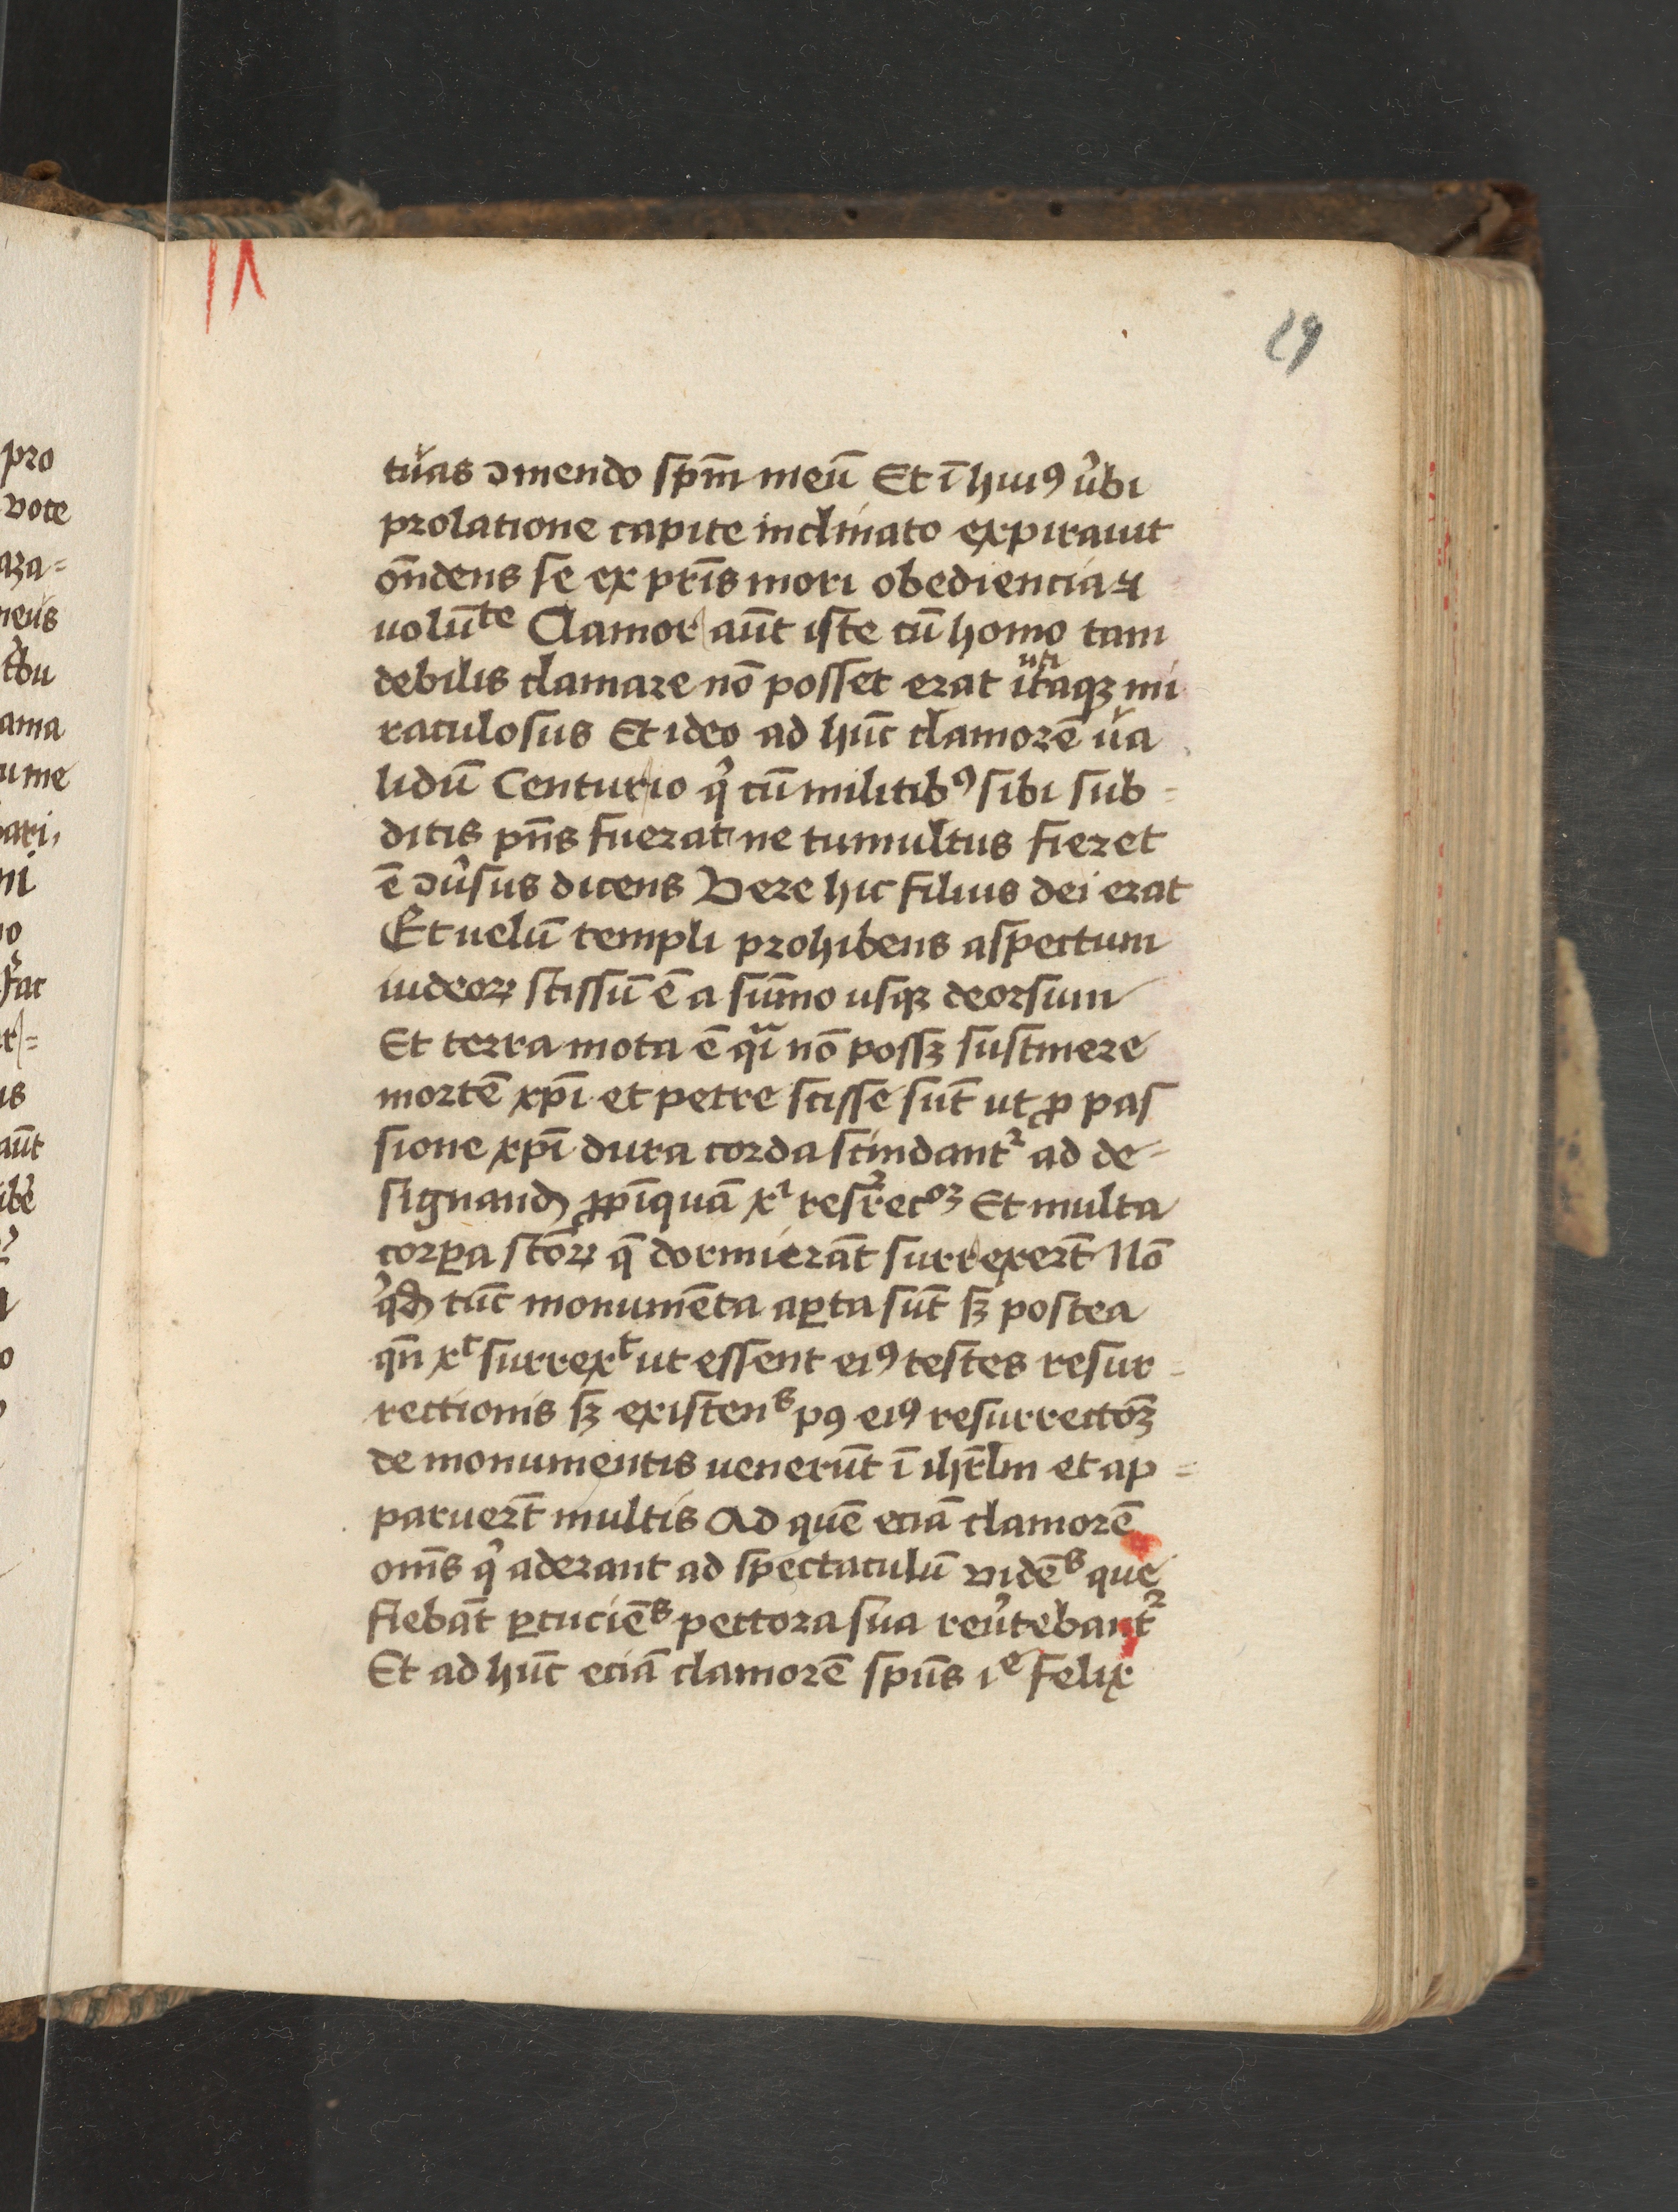 29
tuas ɔmendo spm̄ meū Et ī huiꝰ ūbi
prolatione capite inclinato expirauit
on̄dens se ex pr̄is mori obediencia ⁊
uolūte Clamor aūt iste cū homo tam
debilis clamare nō posset erat utiqꝫ mi
raculosus Et ideo ad hūc clamorē ua
lidū Centurio q̇ cū militibꝰ sibi sub=
ditis pn̄s fuerat ne tumultus fieret
ē ɔūsus dicens Vere hic filius dei erat
Et uelū templi prohibens aspectum
iudeoꝝ scissū ē a sūmo usqꝫ deorsum
Et terra mota ē qͥa nō possꝫ sustinere
mortē xp̄i et petre scisse sūt ut ꝓ pas
sione xp̄i dura corda scindantᷣ ad de-
signand ꝓpīquā xͥ resrrecōꝫ Et multa
corꝑa sctōꝝ q̄ dormierāt surrexerūt Nō
qd tūc monumēta aꝑta sūt sꝫ postea
qn̄ xᵗ surrexᵗ ut essent eiꝰ testes resur-
rectionis sꝫ existenˢ pꝰ eiꝰ resurrectōꝫ
de monumentis uenerūt ī ihrl̄m et ap=
paruerūt multis Ad quē eciā clamorē
om̄s q̇ aderant ad spectaculū vidēˢ que
fiebāt ꝑcuciēˢ pectora sua reūtebantᷣ
Et ad hūc eciā clamorē spūs iᵉ felix